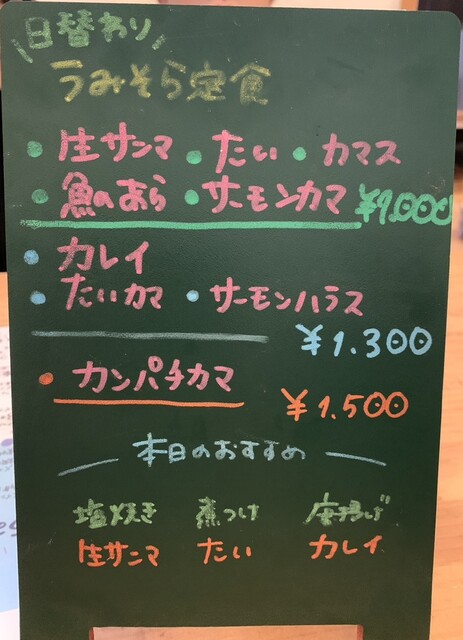 日替わり
うみそら定食
・生サンマ ・たい ・カマス
・魚のあら ・サーモンカマ ¥1.000
・カレイ
・たいカマ ・サーモンハラス
¥1.300
・カンパチカマ
¥1.500
本日のおすすめ
塩焼き 煮つけ 唐揚げ
生サンマ たい カレイ